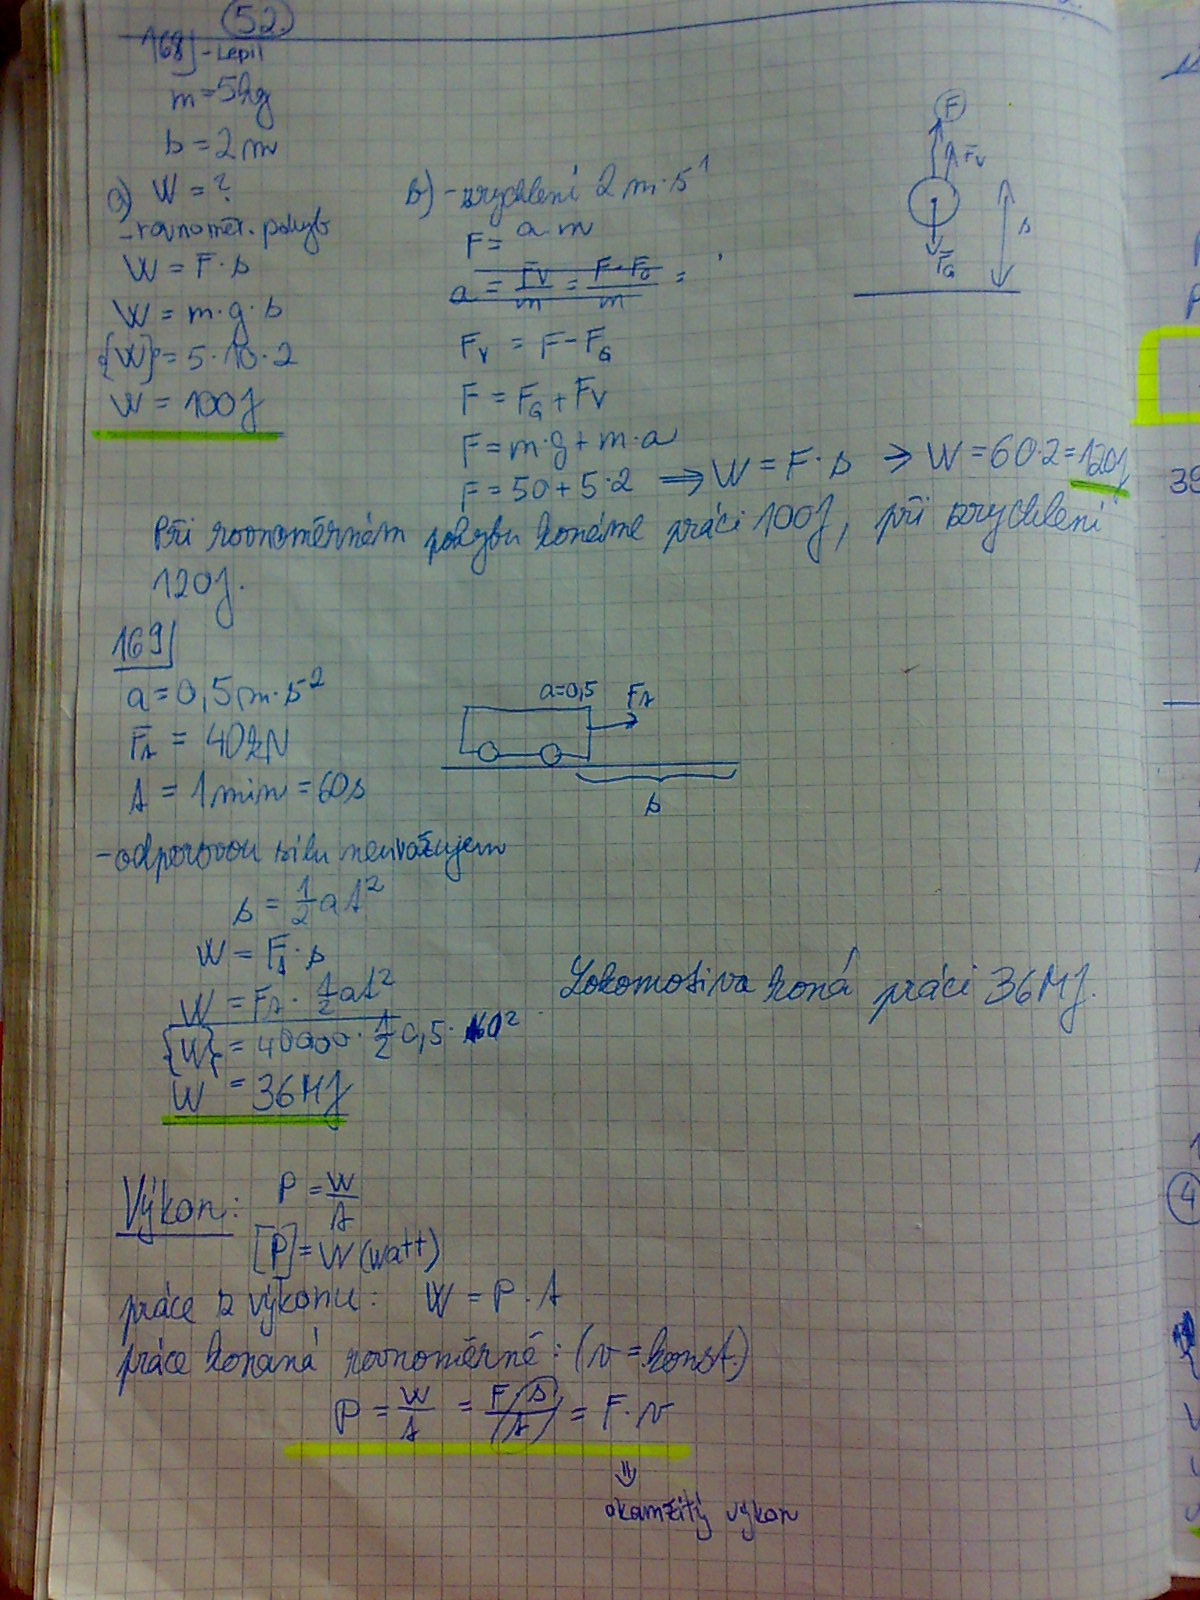 52.
168 - Lepil
m = 5kg
s = 2m
a) W = ?
- rovnoměr. pohyb
W = F · s
W = m · g · s
{W} = 5 · 10 · 2
W = 100J
b) - zrychlení 2 m · s¹
F = a · m
a = Fv/m = F - FG/m =
Fv = F - FG
F = FG + Fv
F = m · g + m · a
F = 50 + 5 · 2 ⇒ W = F · s ⇒ W = 60 · 2 = 120J
F
Fv
FG
s
Při rovnoměrném pohybu konáme práci 100J, při zrychlení
120J.
169
a = 0,5 m · s²
Ft = 40kN
t = 1min = 60s
a=0,5 Ft
s
- odporovou sílu neuvažujem
s = 1/2 at²
W = Ft · s
W = Ft · 1/2 at²
{W} = 40000 · 1/2 0,5 · 60²
W = 36MJ
Lokomotiva koná práci 36MJ.
Výkon: P = W/t
[P] = W (watt)
práce z výkonu: W = P · t
práce konaná rovnoměrně: (v = konst.)
P = W/t = F s/t = F · v
⇓
okamžitý výkon
39
4